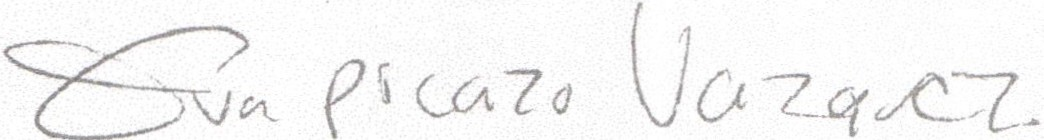 Eva Picazo Vazquez.